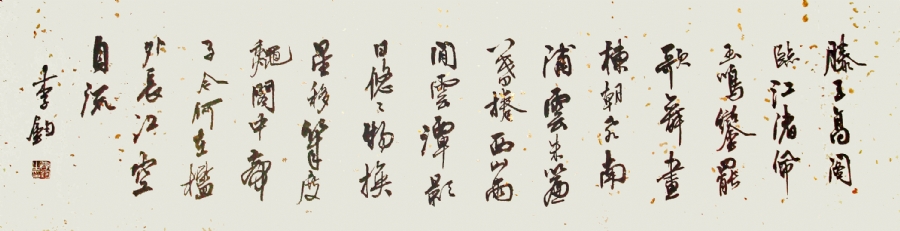 滕王高閣
臨江渚佩
玉鳴鸞罷
歌舞畫
棟朝飛南
浦雲朱簾
暮捲西山雨
閒雲潭影
日悠々物換
星移幾度
龝閣中帝
子今何在檻
外長江空
自流
李鈞